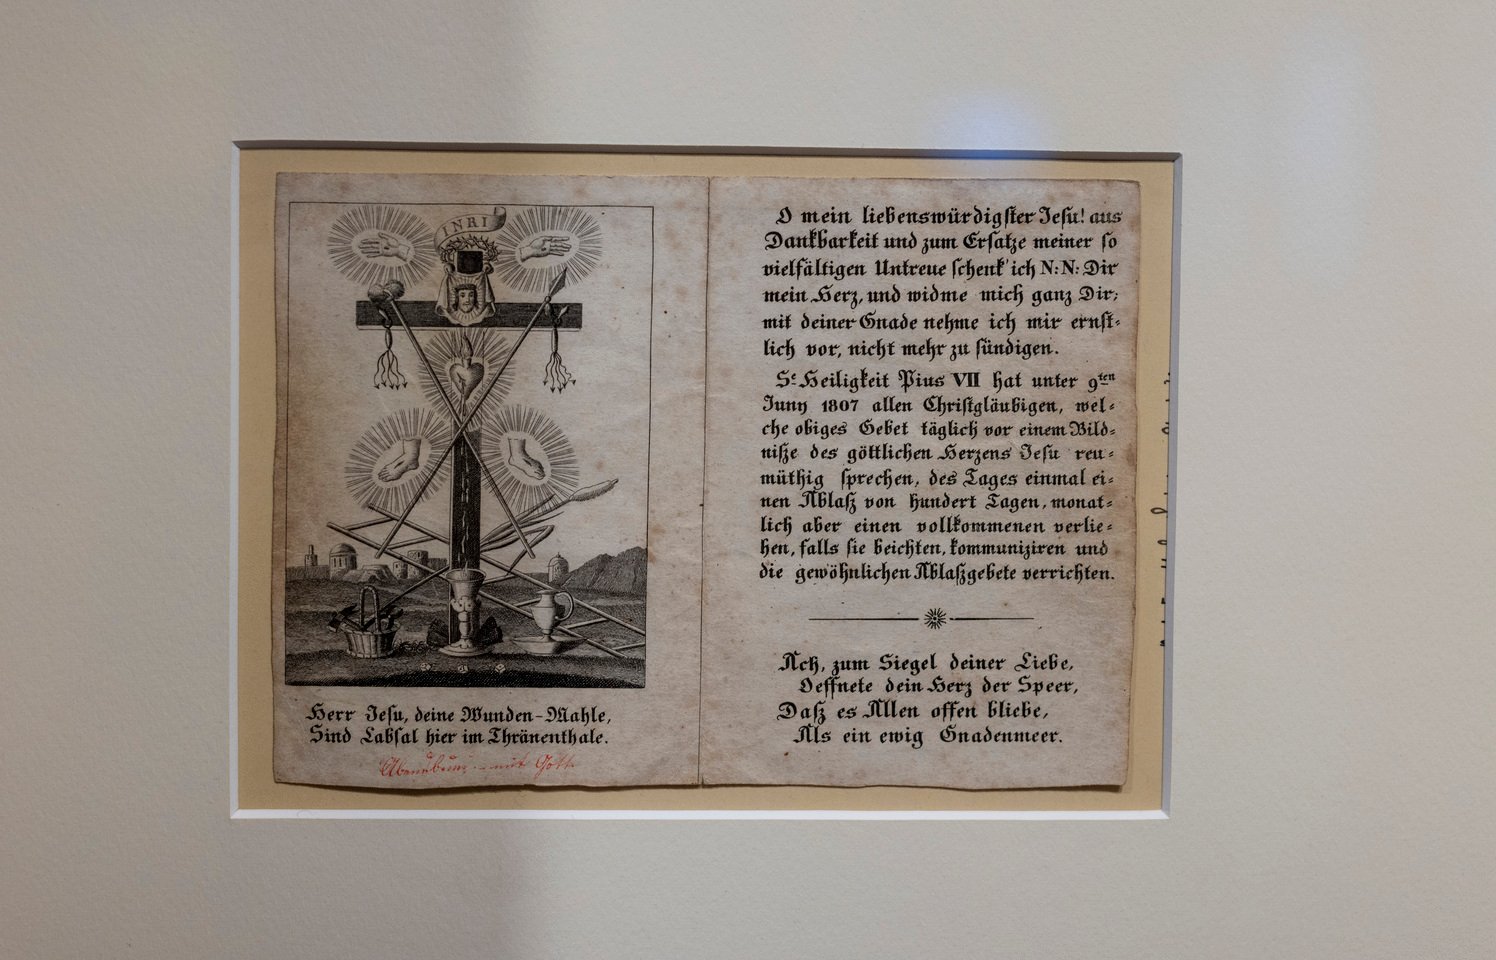 INRI
Herr Jesu, deine Wunden-Mahle,
Sind Labsal hier im Thränenthale.
mit Gott
O mein liebenswürdigster Jesu! aus
Dankbarkeit und zum Ersatze meiner so
vielfältigen Untreue schenk' ich N: N: Dir
mein Herz, und widme mich ganz Dir;
mit deiner Gnade nehme ich mir ernst-
lich vor, nicht mehr zu sündigen.
Se Heiligkeit Pius VII hat unter 9ten
Juny 1807 allen Christgläubigen, wel-
che obiges Gebet täglich vor einem Bild-
niße des göttlichen Herzens Jesu reu-
müthig sprechen, des Tages einmal ei-
nen Ablaß von hundert Tagen, monat-
lich aber einen vollkommenen verlie-
hen, falls sie beichten, kommuniziren und
die gewöhnlichen Ablaßgebete verrichten.
Ach, zum Siegel deiner Liebe,
Oeffnete dein Herz der Speer,
Daß es Allen offen bliebe,
Als ein ewig Gnadenmeer.